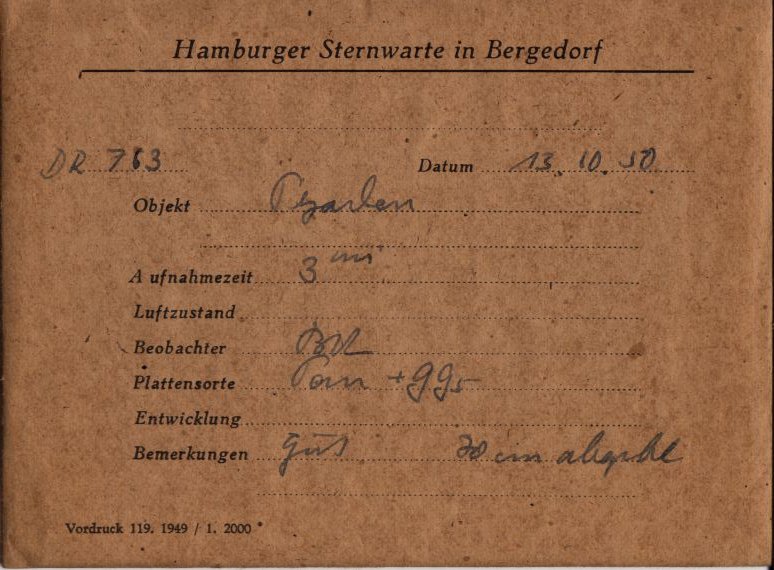 Hamburger Sternwarte in Bergedorf
DR 763 Datum 13. 10. 50
Objekt Plejaden
Aufnahmezeit 3 min
Luftzustand
Beobachter
Plattensorte Pan + GG5
Entwicklung
Bemerkungen gut 70 cm
Vordruck 119. 1949 / 1. 2000